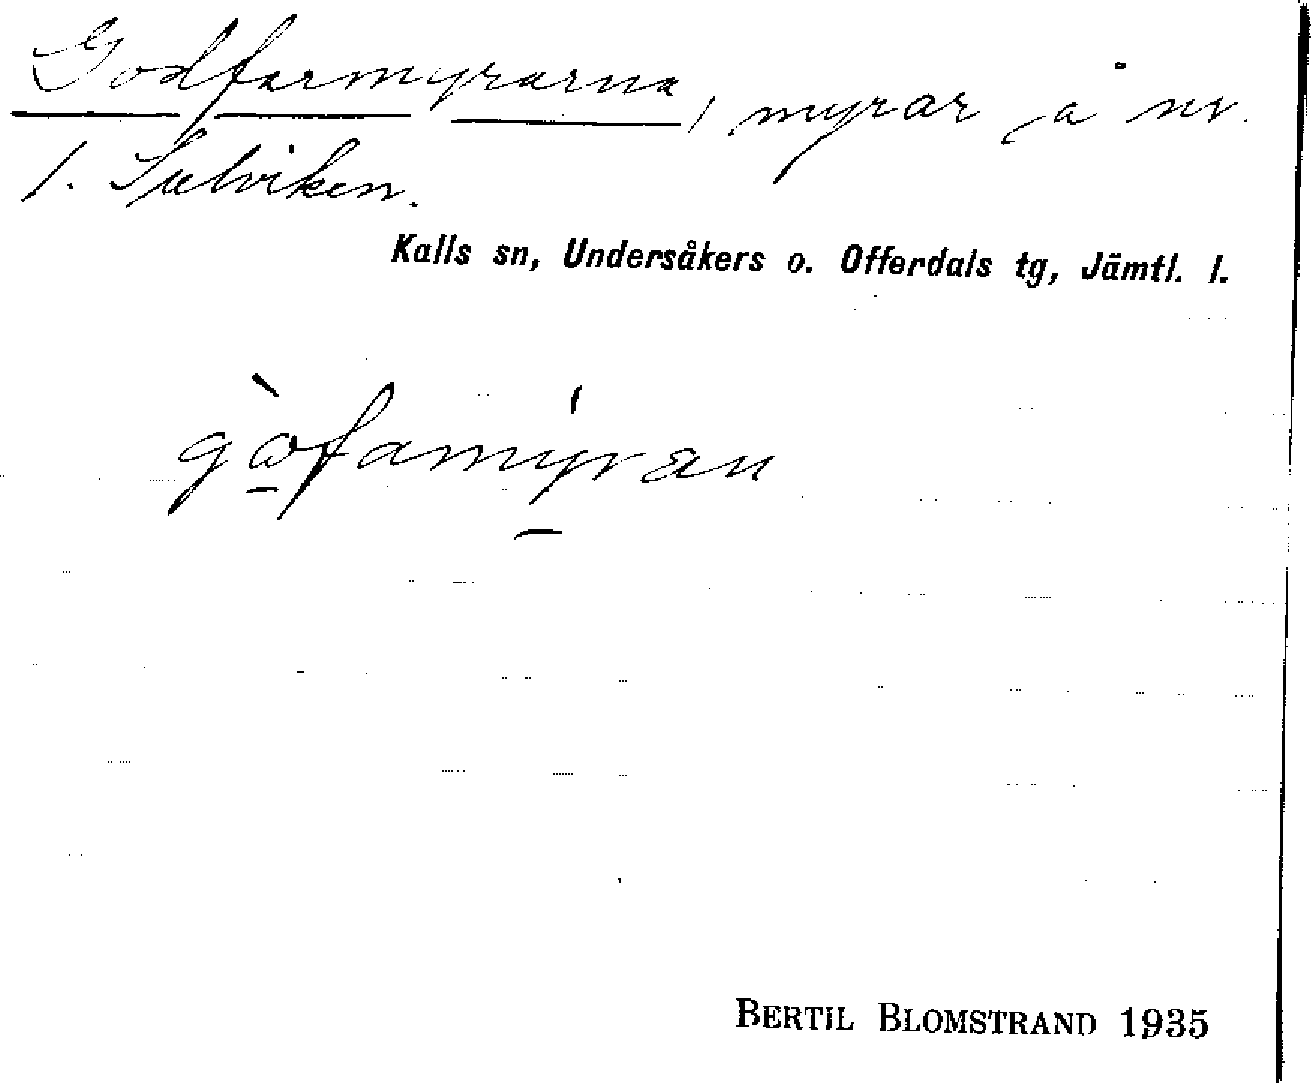 Godfarmyrarna, myrar å nr.
1. Sulviken.
Kalls sn, Undersåkers o. Offerdals tg, Jämtl. l.
gòfamyran
BERTIL BLOMSTRAND 1935